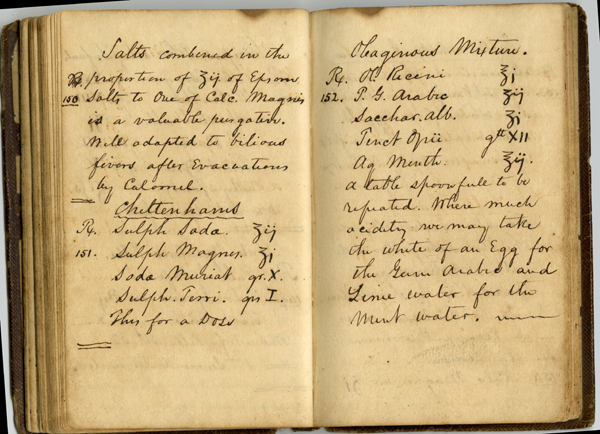 Salts combined in the
℞ proportion of ʒij of Epsom
150 Salts to One of Calc. Magnes
is a valuable purgative.
Well adapted to bilious
fivers after Evacuations
by Calomel.
Cheltenhams
℞. Sulph Soda. ʒij
151. Sulph Magnes. ʒj
Soda Muriat gr. X.
Sulph. Ferri. grs I.
This for a Doss
Oleaginous Mixture.
℞. Ol. Ricini ℥j
152. P. G. Arabic ʒij
Sacchar. alb. ʒj
Tinct Opii gtt XII
Aq Menth. ℥ij.
a table spoonfull to be
repeated. Where much
acidity we may take
the white of an Egg for
the Gum Arabic and
Lime water for the
Mint water.